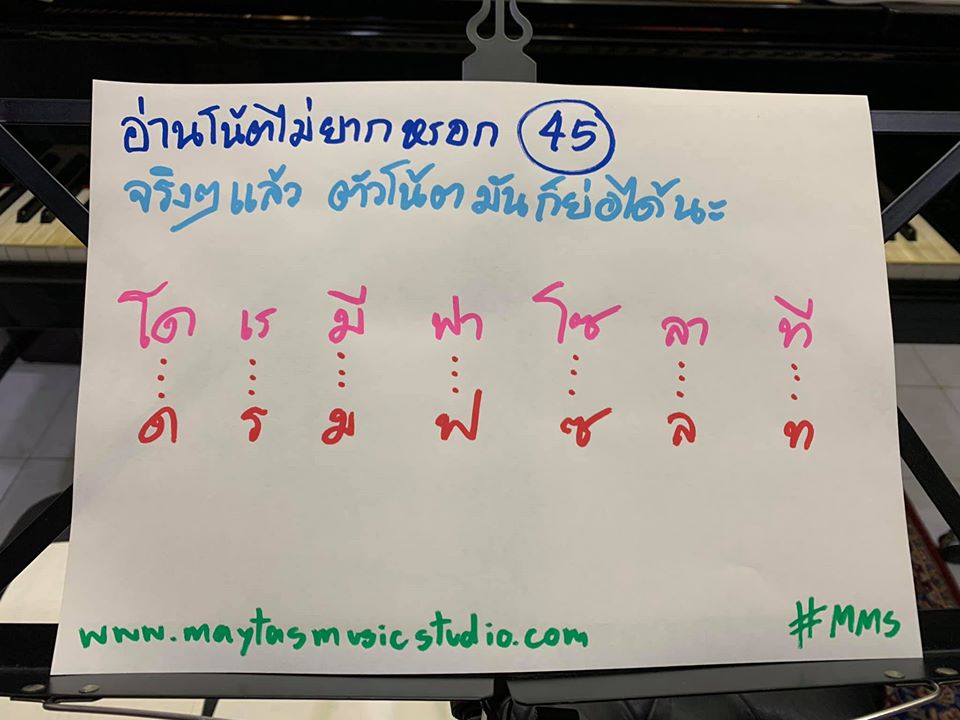 อ่านโน้ตไม่ยากหรอก 45
จริงๆแล้ว ตัวโน้ตมันก็ย่อได้นะ
โด เร มี ฟา โซ ลา ที
ด ร ม ฟ ซ ล ท
www.maytasmusicstudio.com #MMS